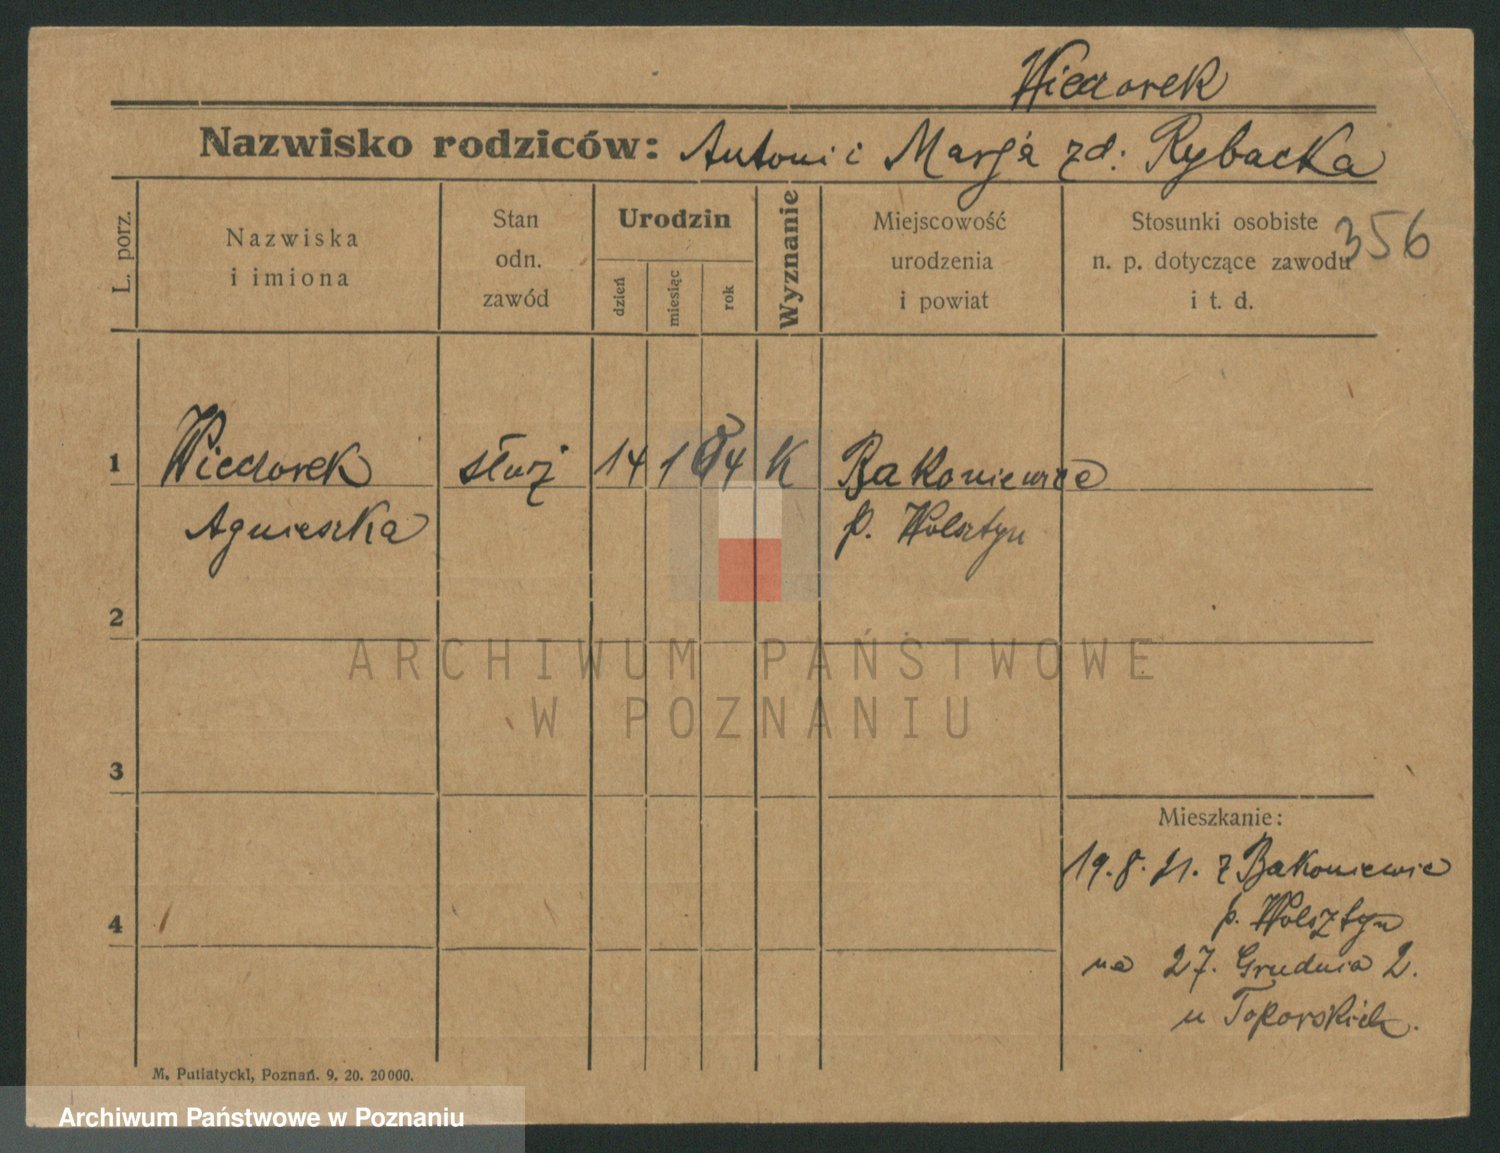 Wieczorek
Nazwisko rodziców: Antoni i Marja zd. Rybacka
L. porz.
Nazwiska
i imiona
Stan
odn.
zawód
Urodzin
dzień
miesiąc
rok
Wyznanie
Miejscowość
urodzenia
i powiat
Stosunki osobiste
n. p. dotyczące zawodu
i t. d.
356
1 Wieczorek służ 14 1 84 K Rakoniewice
Agnieszka p. Wolsztyn
2
ARCHIWUM PAŃSTWOWE
W POZNANIU
3
Mieszkanie:
19.8.21. z Rakoniewic
p. Wolsztyn
4
na 27. Grudnia 2.
u Toporskich.
M. Putiatycki, Poznań. 9. 20. 20000.
Archiwum Państwowe w Poznaniu